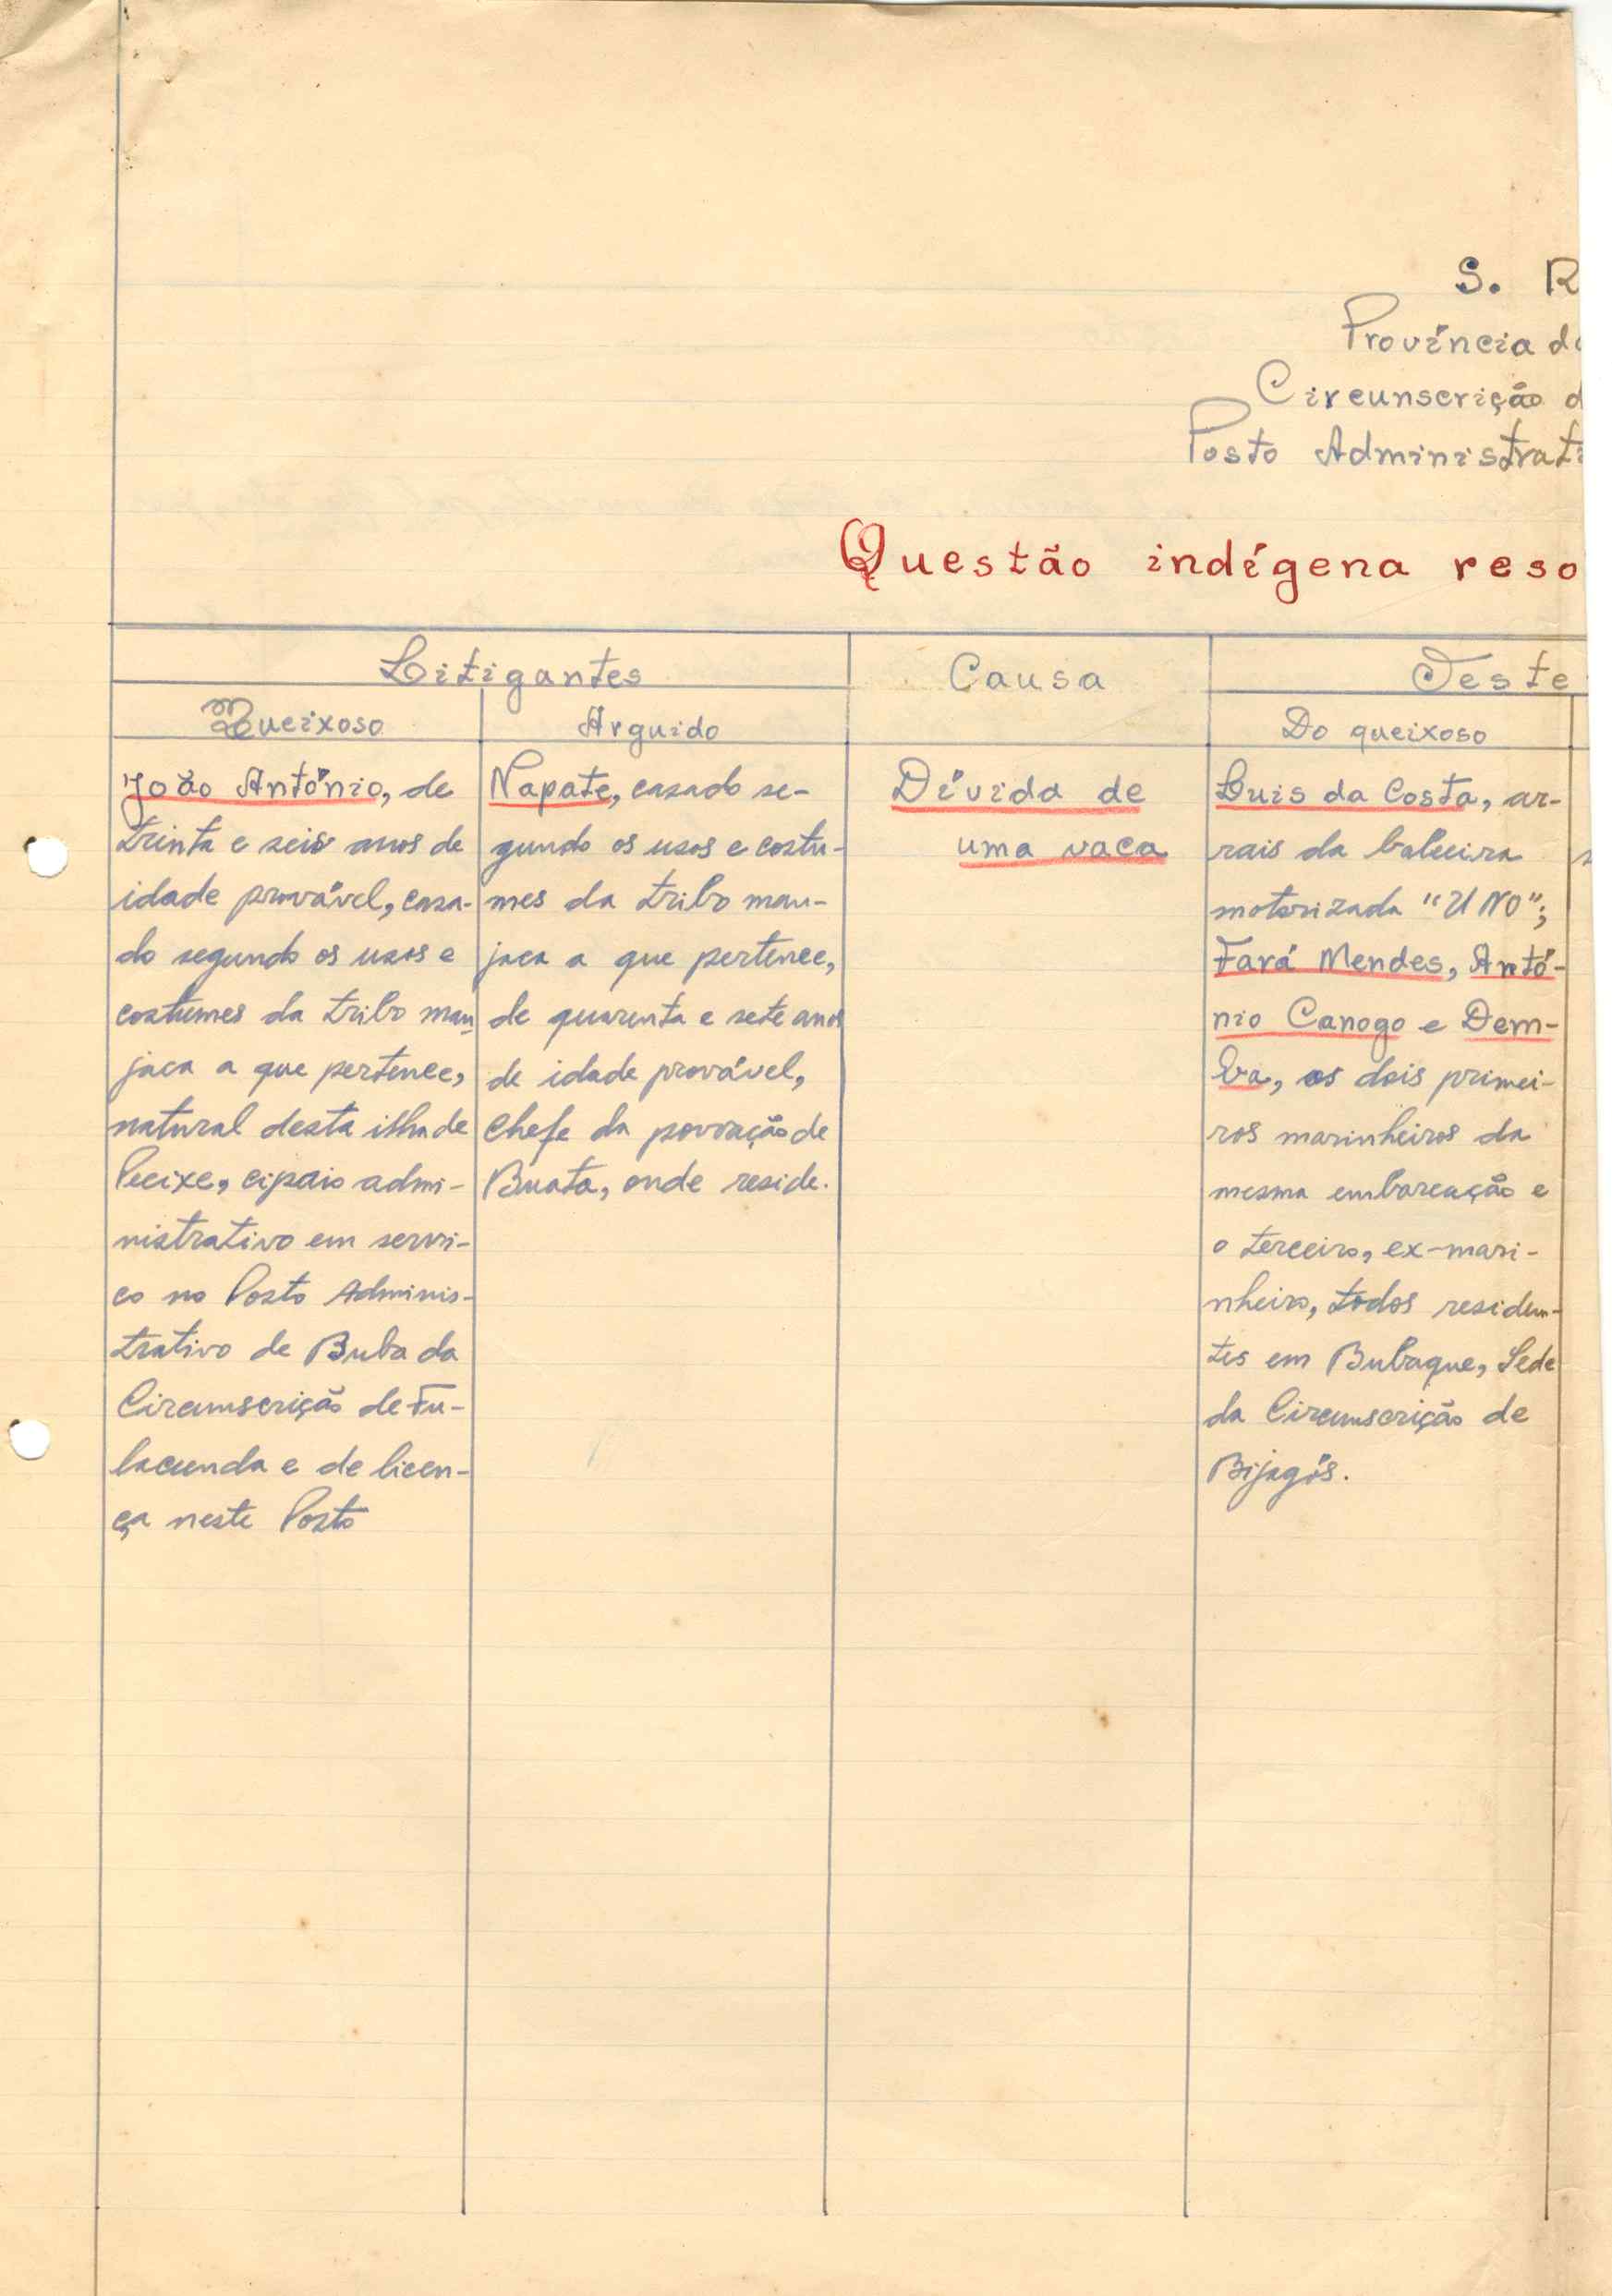 S. R
Província d
Circunscrição d
Posto Administrati
Questão indígena reso
Litigantes
Causa
Teste
Queixoso
Arguido
Do queixoso
João António, de
trinta e seis anos de
idade provável, casa-
do segundo os usos e
costumes da tribo man
jaca a que pertence,
natural desta ilha de
Peixe, cipaio admi-
nistrativo em servi-
ço no Posto Adminis-
trativo de Buba da
Circunscrição de Fu-
lacunda e de licen-
ça neste Posto
Napate, casado se-
gundo os usos e costu-
mes da tribo man-
jaca a que pertence,
de quarenta e sete anos
de idade provável,
Chefe da povoação de
Buata, onde reside.
Dívida de
uma vaca
Luis da Costa, ar-
rais da baleeira
motorizada "UNO";
Fará Mendes, Antó-
nio Canogo e Dem-
ba, os dois primei-
ros marinheiros da
mesma embarcação e
o terceiro, ex-mari-
nheiro, todos residen-
tes em Bubaque, Sede
da Circunscrição de
Bijagós.